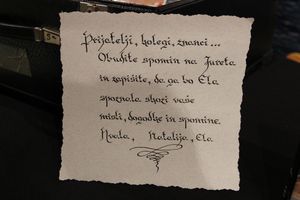 Prijatelji, kolegi, znanci...
Obudite spomin na Jureta
in zapišite, da ga bo Ela
spoznala skozi vaše
misli, dogodke in spomine.
Natalija, Ela